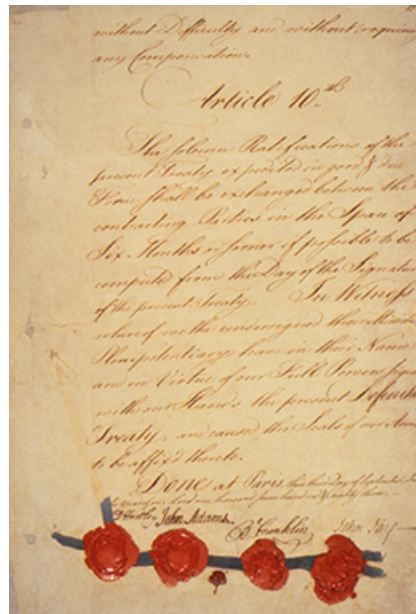 without Difficulty and without requirin
any Compensation.
Article 10.th
The solemn Ratifications of the
present Treaty expedited in good & due
Form shall be exchanged between the
contracting Parties in the Space of
Six Months or sooner if possible to be
computed from the Day of the Signatu
of the present Treaty. In Witness
whereof we the undersigned their Minis
Plenipotentiary have in their Name
and in Virtue of our Full Powers sign
with our Hands the present Definiti
Treaty, and caused the Seals of our Arms
to be affix'd thereto.
Done at Paris, this third Day of September, In
the Year of our Lord one thousand seven hundred & eighty three.
D Hartley John Adams. B Franklin John Jay